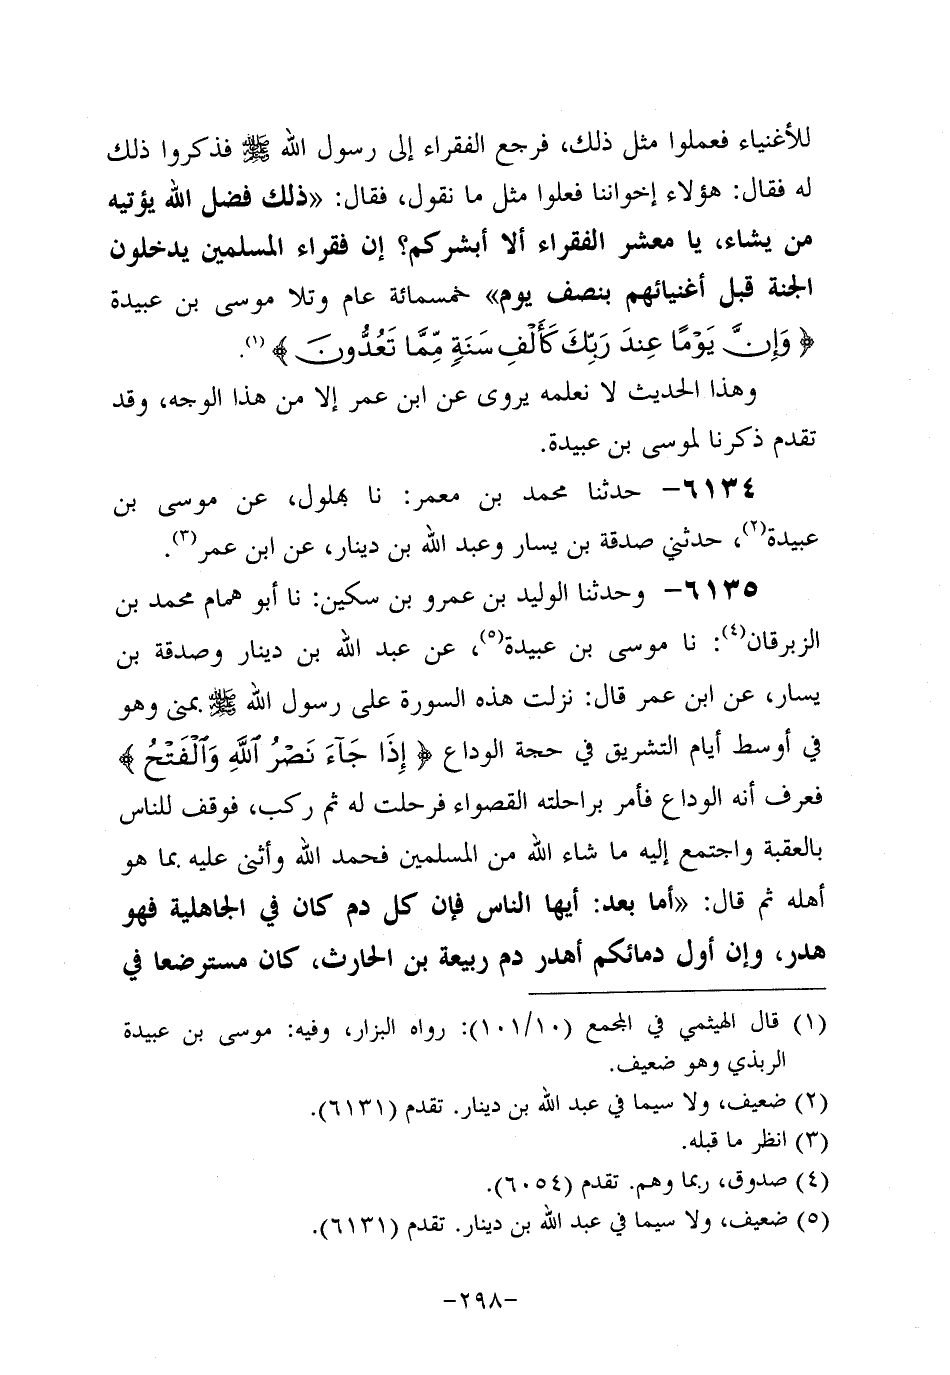 للأغنياء فعملوا مثل ذلك، فرجع الفقراء إلى رسول الله ﷺ فذكروا ذلك
له فقال: هؤلاء إخواننا فعلوا مثل ما نقول، فقال: «ذلك فضل الله يؤتيه
من يشاء، يا معشر الفقراء ألا أبشركم؟ إن فقراء المسلمين يدخلون
الجنة قبل أغنيائهم بنصف يوم» خمسمائة عام وتلا موسى بن عبيدة
﴿ وَإِنَّ يَوْمًا عِندَ رَبِّكَ كَأَلْفِ سَنَةٍ مِّمَّا تَعُدُّونَ ﴾(١).
وهذا الحديث لا نعلمه يروى عن ابن عمر إلا من هذا الوجه، وقد
تقدم ذكرنا لموسى بن عبيدة.
٦١٣٤- حدثنا محمد بن معمر: نا بهلول، عن موسى بن
عبيدة(٢)، حدثني صدقة بن يسار وعبد الله بن دينار، عن ابن عمر(٣).
٦١٣٥- وحدثنا الوليد بن عمرو بن سكين: نا أبو همام محمد بن
الزبرقان(٤): نا موسى بن عبيدة(٥)، عن عبد الله بن دينار وصدقة بن
يسار، عن ابن عمر قال: نزلت هذه السورة على رسول الله ﷺ بمنى وهو
في أوسط أيام التشريق في حجة الوداع ﴿ إِذَا جَآءَ نَصْرُ ٱللَّهِ وَٱلْفَتْحُ ﴾
فعرف أنه الوداع فأمر براحلته القصواء فرحلت له ثم ركب، فوقف للناس
بالعقبة واجتمع إليه ما شاء الله من المسلمين فحمد الله وأثنى عليه بما هو
أهله ثم قال: «أما بعد: أيها الناس فإن كل دم كان في الجاهلية فهو
هدر، وإن أول دمائكم أهدر دم ربيعة بن الحارث، كان مسترضعا في
(١) قال الهيثمي في المجمع (١٠١/١٠): رواه البزار، وفيه: موسى بن عبيدة
الربذي وهو ضعيف.
(٢) ضعيف، ولا سيما في عبد الله بن دينار. تقدم (٦١٣١).
(٣) انظر ما قبله.
(٤) صدوق، ربما وهم. تقدم (٦٠٥٤).
(٥) ضعيف، ولا سيما في عبد الله بن دينار. تقدم (٦١٣١).
-٢٩٨-